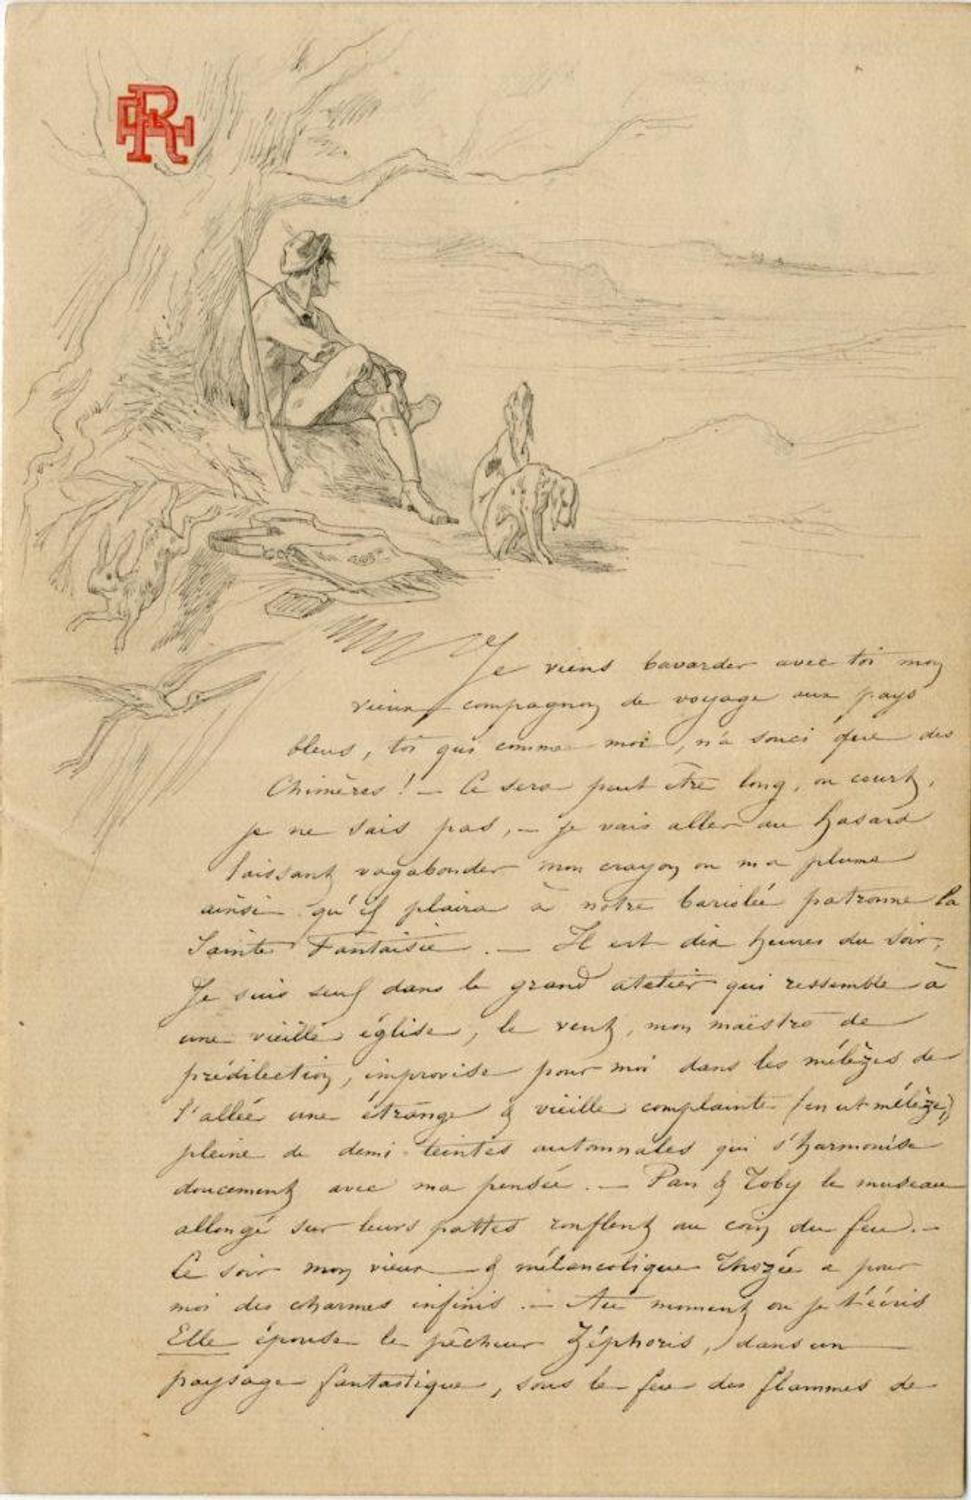 Je viens bavarder avec toi mon
vieux compagnon de voyage aux pays
bleus, toi qui comme moi, n'a souci que des
Chimères ! — Ce sera peut être long, ou court,
je ne sais pas, — je vais aller au hasard
laissant vagabonder mon crayon ou ma plume
ainsi qu'il plaira à notre bariolée patronne la
Sainte Fantaisie. — Il est dix heures du soir,
Je suis seul dans le grand atelier qui ressemble à
une vieille église, le vent, mon maëstro de
prédilection, improvise pour moi dans les mélèzes de
l'allée une étrange & vieille complainte (en ut mélèze,)
pleine de demi-teintes automnales qui s'harmonise
doucement avec ma pensée. — Pan & Toby le museau
allongé sur leurs pattes ronflent au coin du feu. —
Ce soir mon vieux & mélancolique Thozée a pour
moi des charmes infinis. — Au moment où je t'écris
Elle épouse le pêcheur Zéphoris, dans un
paysage fantastique, sous le feu des flammes de